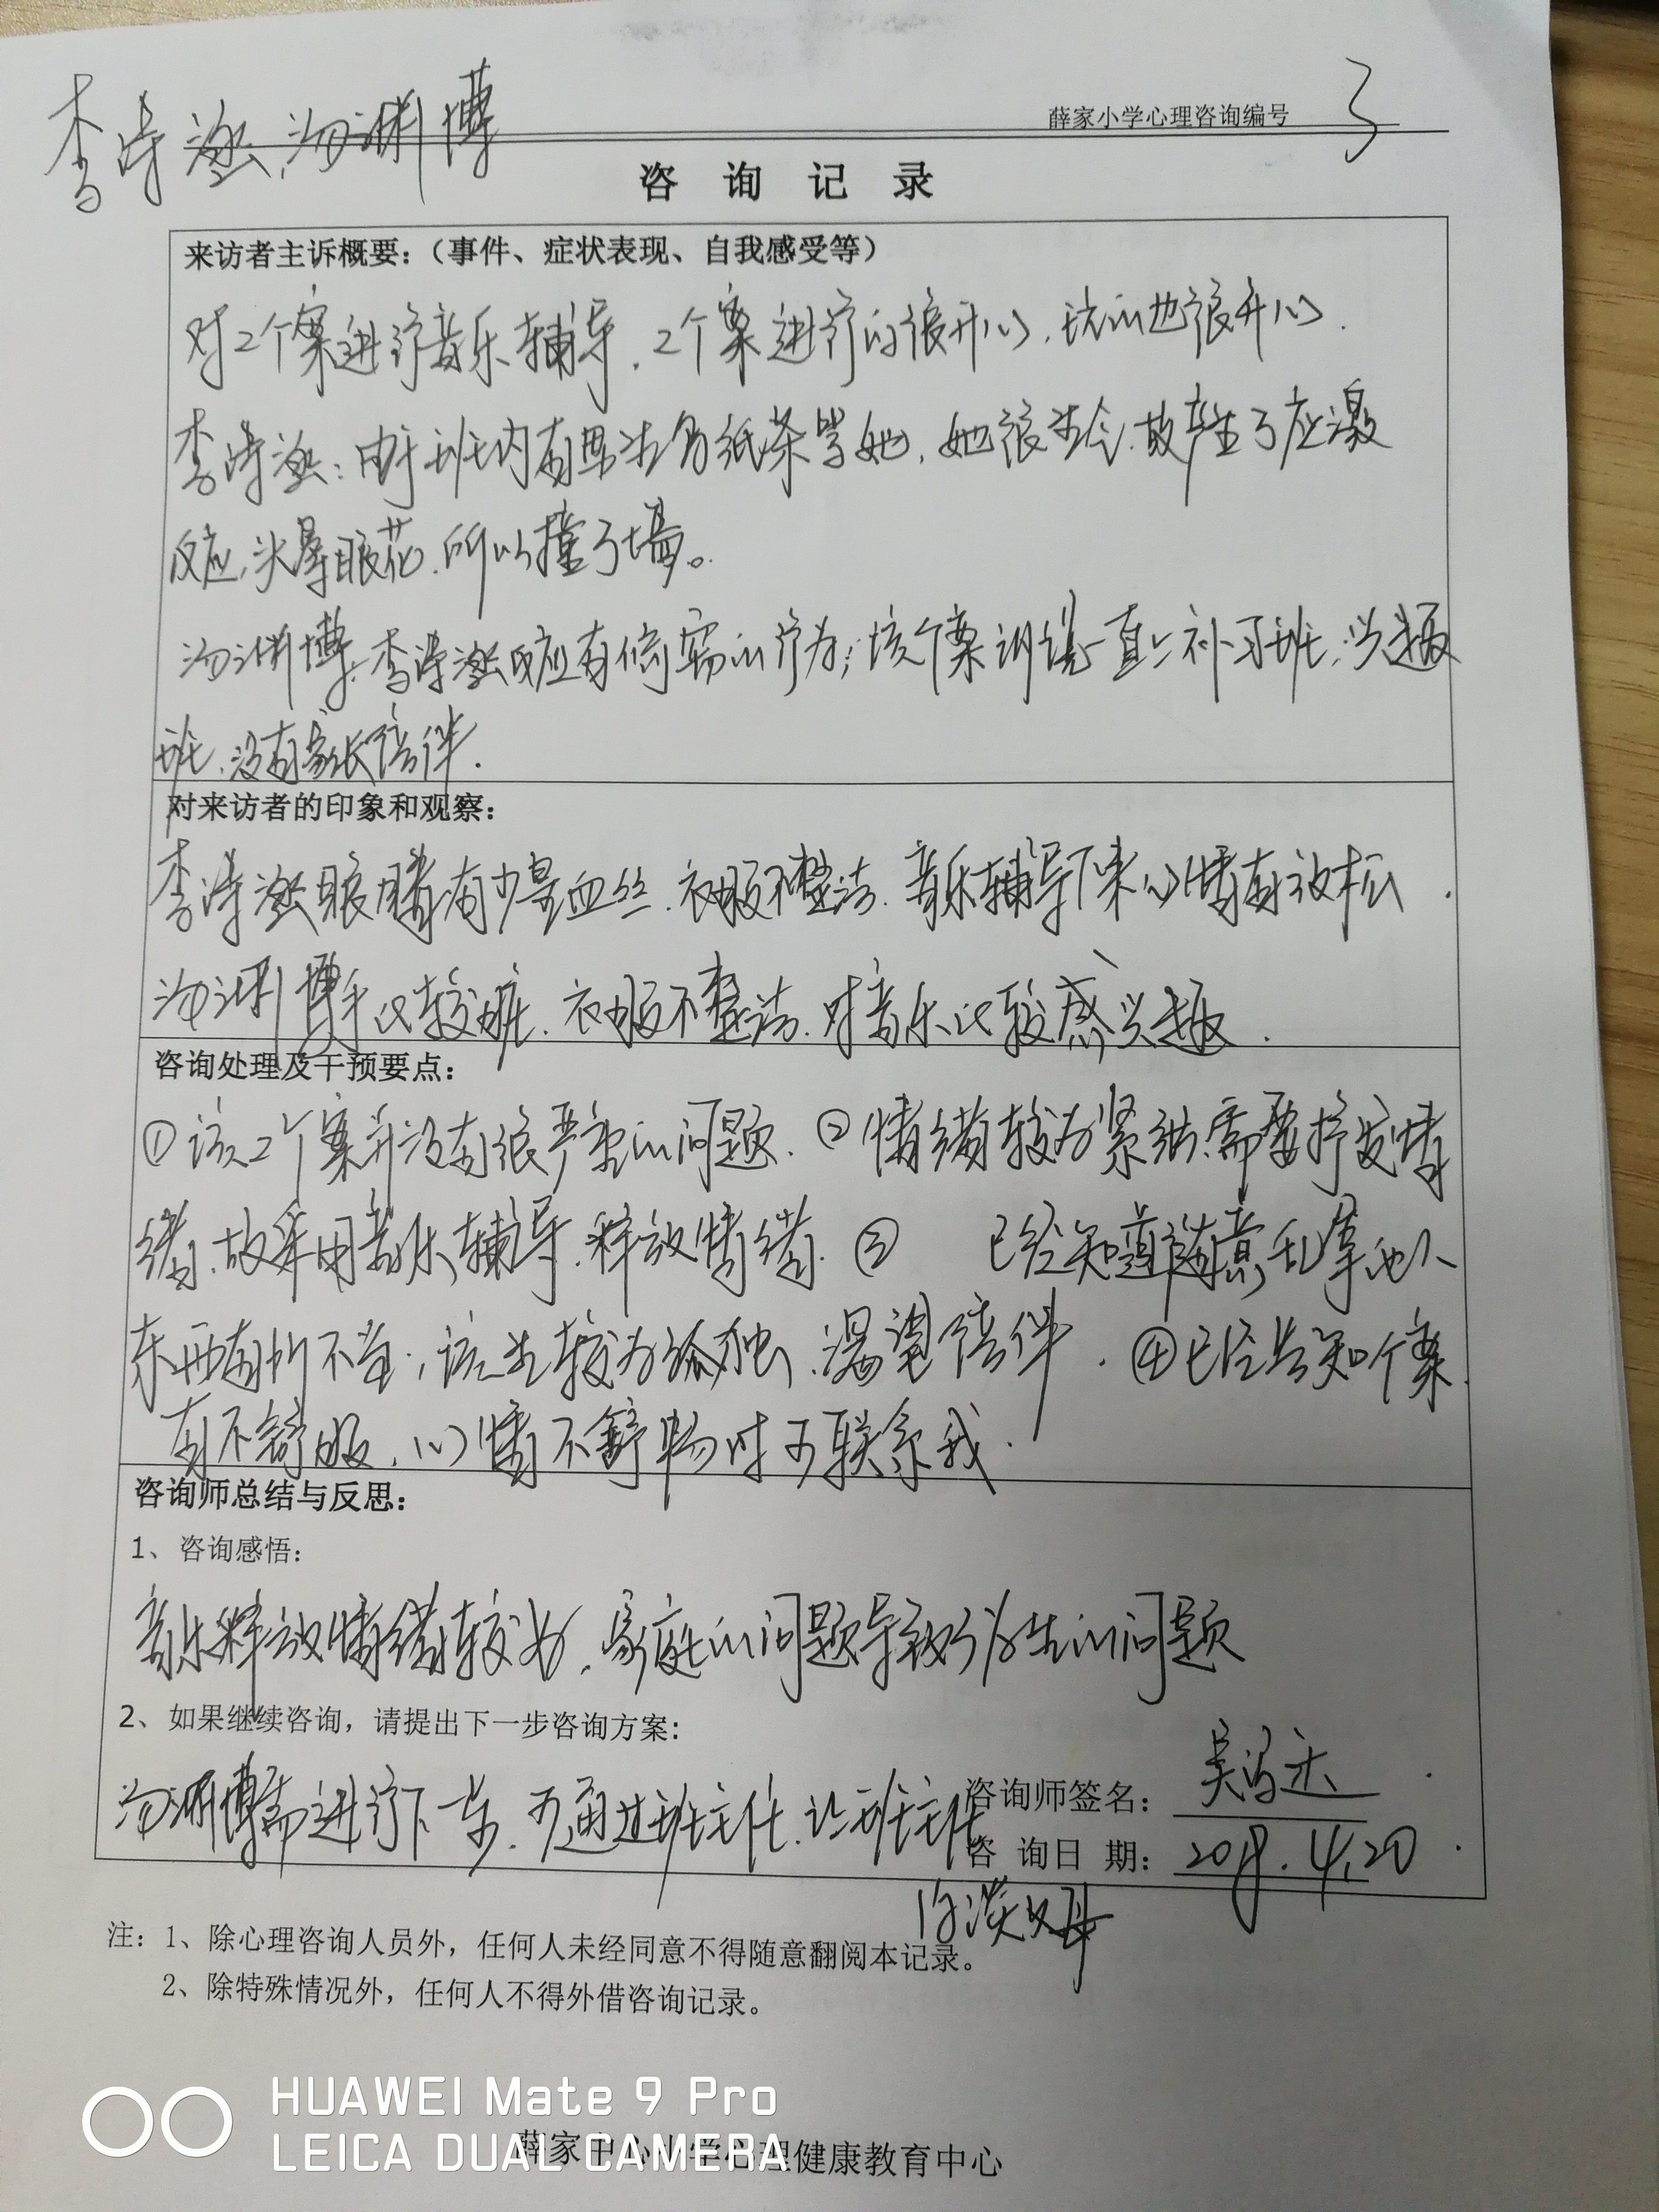 薛家小学心理咨询编号 3
李诗 汤渊博
咨 询 记 录
来访者主诉概要：（事件、症状表现、自我感受等）
对2个案进行音乐辅导，2个案进行的很开心，玩的也很开心．
李诗：由于班内有男生写纸条骂她，她很生气，故产生了应激
反应，头晕眼花，所以撞了墙。
汤渊博：李诗反应有偷窃的行为；该个案训练一直上补习班，兴趣
班，没有家长陪伴．
对来访者的印象和观察：
李诗眼睛有少量血丝，衣服不整洁，音乐辅导下来心情有放松．
汤渊博手比较脏，衣服不整洁，对音乐比较感兴趣．
咨询处理及干预要点：
①该2个案并没有很严重的问题．②情绪较为紧，需要抒发情
绪，故采用音乐辅导，释放情绪．③ 已经知道随意乱拿他人
东西有所不当；该生较为孤独，渴望陪伴．④已经告知个案．
有不舒服，心情不舒畅时可联系我．
咨询师总结与反思：
1、咨询感悟：
音乐释放情绪较好，家庭的问题导致学生的问题
2、如果继续咨询，请提出下一步咨询方案：
汤渊博需进行下一步，可通过班主任，让班主任
咨询师签名：吴
咨 询 日 期：2018.4.20
注：1、除心理咨询人员外，任何人未经同意不得随意翻阅本记录。
2、除特殊情况外，任何人不得外借咨询记录。
HUAWEI Mate 9 Pro
LEICA DUAL CAMERA
薛家中心小学心理健康教育中心